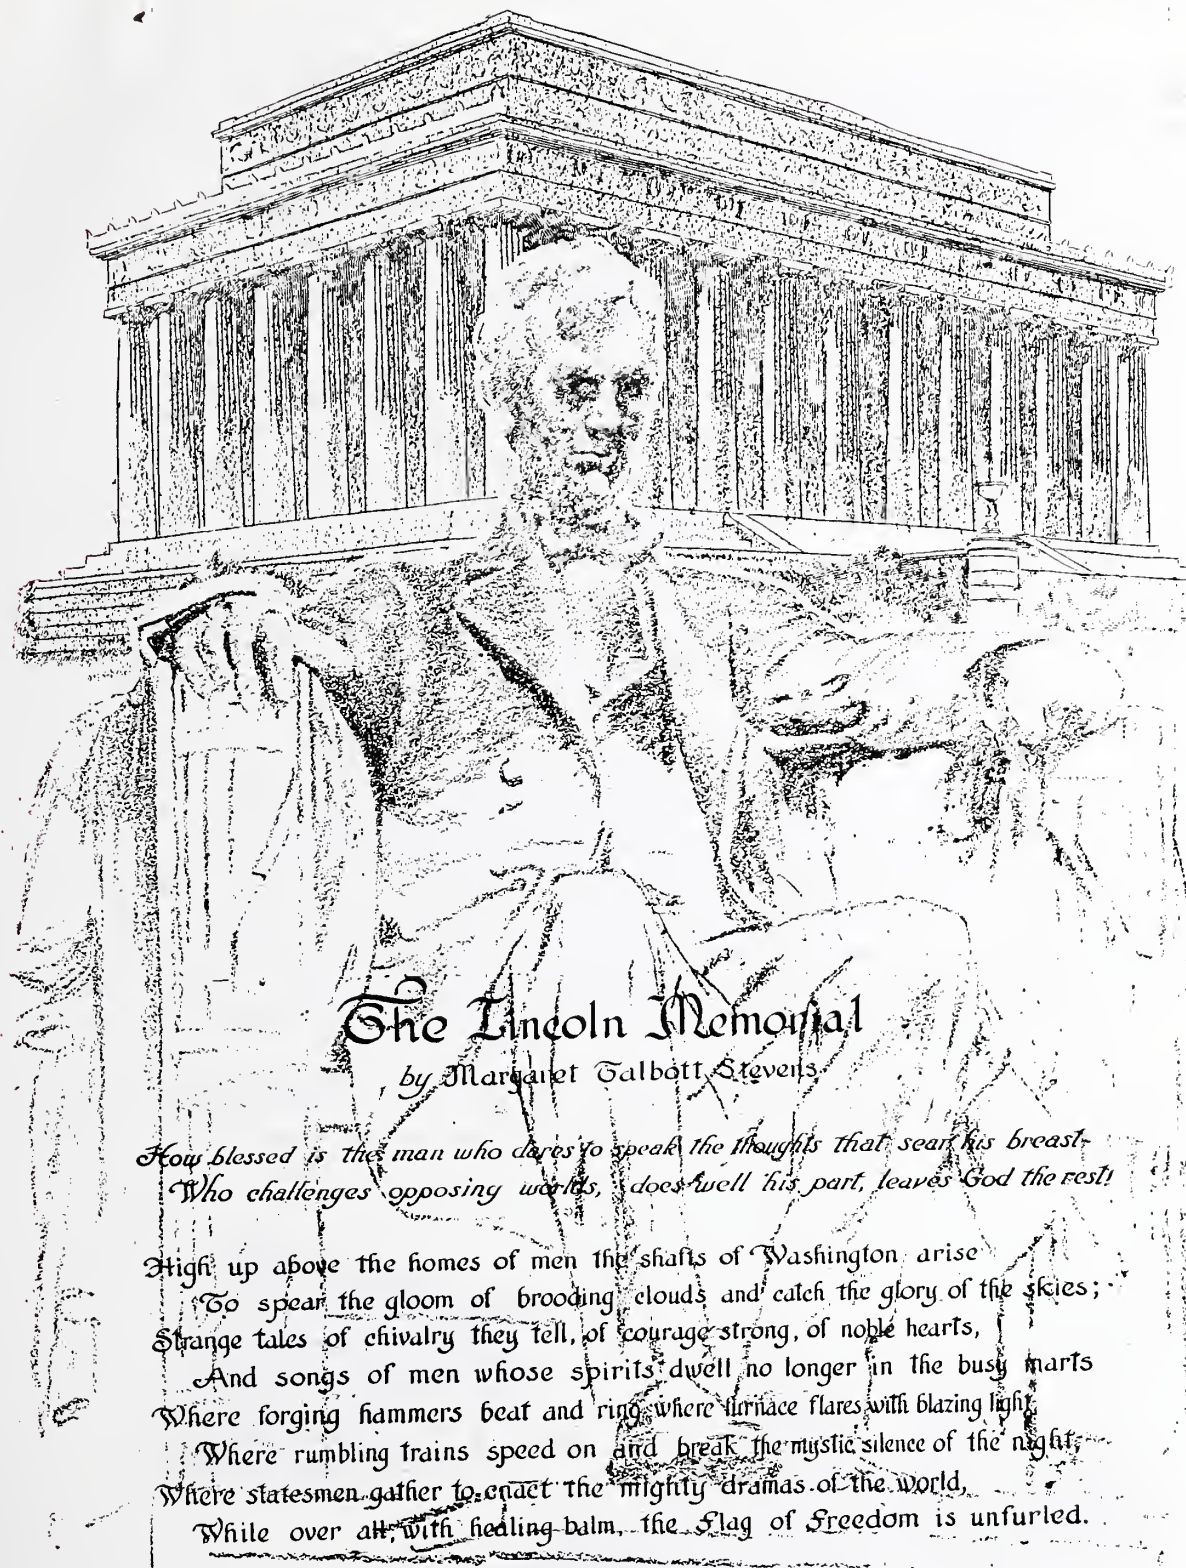 The Lincoln Memorial
by Margaret Talbott Stevens
How blessed is the man who dares to speak the thoughts that sear his breast,
Who challenges opposing worlds, does well his part, leaves God the rest!
High up above the homes of men the shafts of Washington arise
To spear the gloom of brooding clouds and catch the glory of the skies;
Strange tales of chivalry they tell, of courage strong, of noble hearts,
And songs of men whose spirits dwell no longer in the busy marts
Where forging hammers beat and ring, where furnace flares with blazing light,
Where rumbling trains speed on and break the mystic silence of the night,
Where statesmen gather to enact the mighty dramas of the world,
While over all, with healing balm, the Flag of Freedom is unfurled.